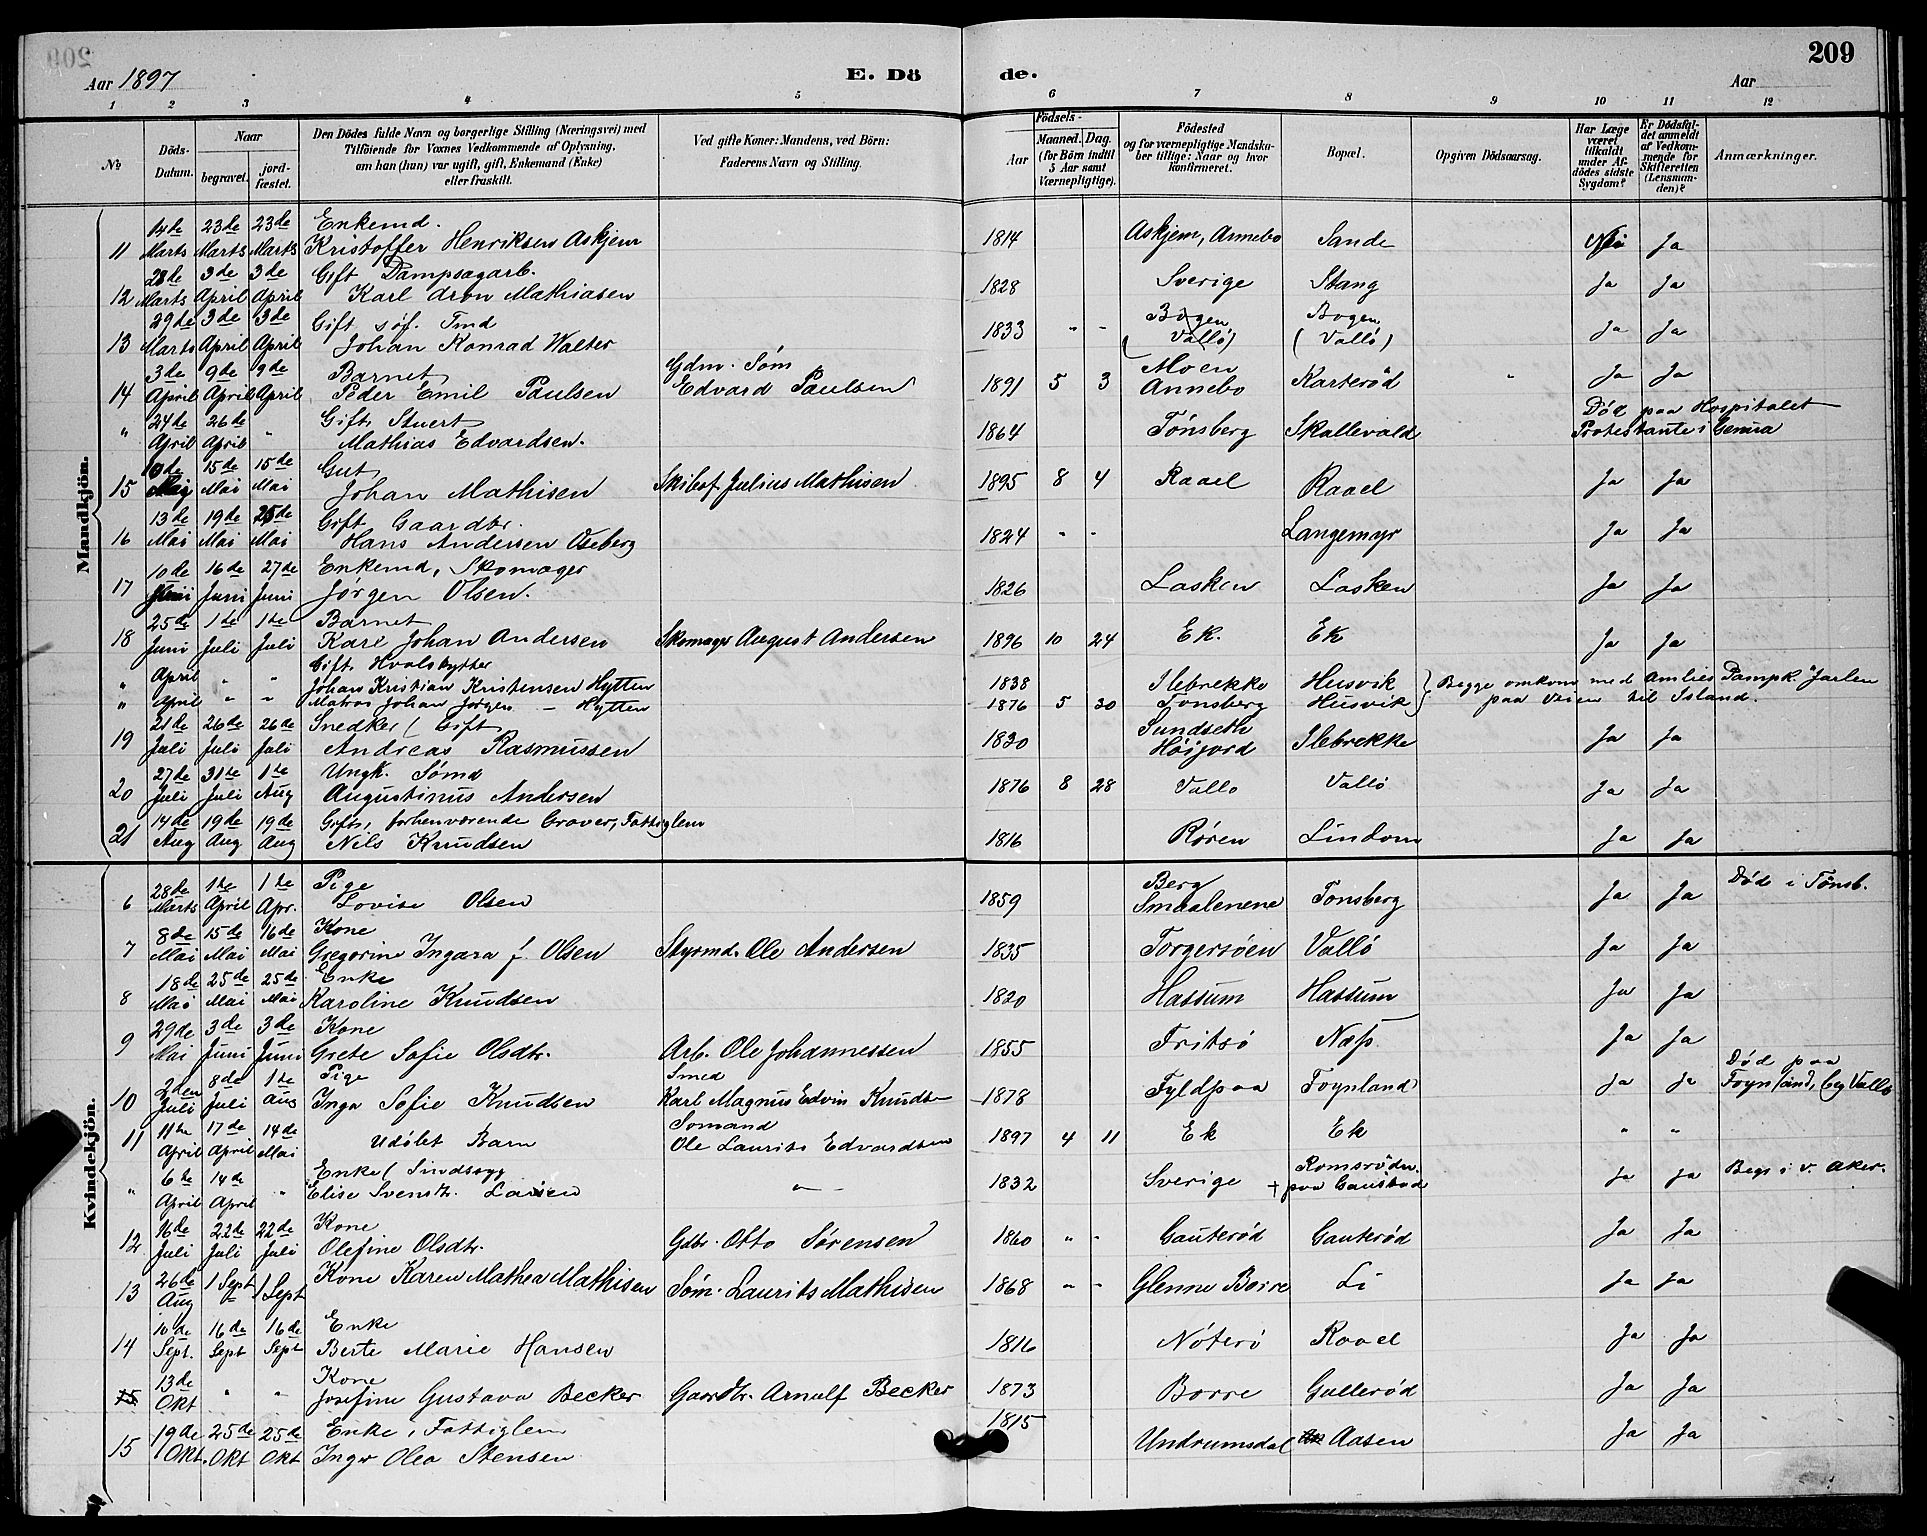 209
Aar 1897
E. Dö
de.
Aar
1 2 3 4 5 6 7 8 9 10 11 12
№
Döds-Datum.
Naar
begravet.
jordfæstet.
Den Dödes fulde Navn og borgerlige Stilling (Næringsvei) med Tilföiende for Voxnes Vedkommende af Oplysning, om han (hun) var ugift, gift, Enkemand (Enke) eller fraskilt.
Ved gifte Koner: Mandens, ved Börn: Faderens Navn og Stilling.
Födsels-
Aar
Maaned. Dag.
(for Börn indtil 5 Aar samt Værnepligtige).
Födested og for værnepligtige Mandskaber tillige: Naar og hvor konfirmeret.
Bopæl.
Opgiven Dödsaarsag.
Har Læge været tilkaldt under Afdödes sidste Sygdom?
Er Dödsfaldet anmeldt af Vedkommende for Skifteretten (Lensmanden)?
Anmærkninger.
Mandkjön.
11 14de Marts 23de Marts 23de Marts Enkemd. Kristoffer Henriksen Askjem 1814 Askjem, Annebo Sande Nei Ja
12 28de Marts 3de April 3de April Gift Dampsagarb. Karl Aron Mathiasen 1828 Sverige Stang Ja Ja
13 29de Marts 3de April 3de April Gift søf. Tmd Johan Konrad Walter 1833 " - Bogen (Vallö) Bogen (Vallö) Ja Ja
14 3de April 9de April 9de April Barnet Peder Emil Paulsen Gdm. Søm Edvard Paulsen 1891 5 3 Moen Annebo Karterød " Ja Ja
" 24de April 26de April " Gift, Stuert Mathias Edvardsen. 1864 Tønsberg Skallevald Død paa Hospitalet Protestante i Genua
15 Mai 15de Mai 15de Mai Gut Johan Mathisen Julius Mathisen 1895 8 4 Raael Raael Ja Ja
16 13de Mai 19de Mai 25de Mai Gift Gaardbr. Hans Andersen Oseberg 1824 " " Langemyr Ja Ja
17 10de Juni 16de Juni 27de Juni Enkemd, Skomager Jørgen Olsen. 1826 Lasken Lasken Ja Ja
18 25de Juni 1te Juli 1te Juli Barnet Karl Johan Andersen Skomagr August Andersen 1896 10 24 Ek. Ek Ja Ja
" April " " Gift, Hvalskytter Johan Kristian Kristensen Hytten 1838 Ilebrekke Husvik } Begge omkom med Amlies Dampk. "Jarlen
" April " " Matros Johan Jørgen — Hytten 1876 5 30 Tønsberg Husvik } paa Veien til Island.
19 21de Juli 26de Juli 26de Juli Snedker (Gift Andreas Rasmussen 1830 Sundseth Høijord Ilebrekke Ja Ja
20 27de Juli 31te Juli 1te Aug Ungk. Sømd Augustinus Andersen 1876 8 28 Vallo Vallö Ja Ja
21 14de Aug 19de Aug 19de Aug Gift, forhenværende Graver, Fattiglem Nils Knudsen 1816 Røren Lindom Ja Ja
Kvindekjön.
6 28de Marts 1te April 1te Apr. Pige Lovise Olsen 1859 Berg Smaalenene Tonsberg Ja Ja Død i Tönsb.
7 8de Mai 15de Mai 16de Mai Kone Gregorine Ingara f. Olsen Styrmd. Ole Andersen 1835 Torgersøen Vallö Ja Ja
8 18de Mai 25de Mai 25de Mai Enke Karoline Knudsen 1820 Hassum Hassum Ja Ja
9 29de Mai 3de Juni 3de Juni Kone Grete Sofie Olsdtr. Arb. Ole Johannessen 1855 Fritsö Næss. Ja Ja
10 2den Juli 8de Juli 1te Aug Pige Inga Sofie Knudsen Smed Karl Magnus Edvin Knuds- 1878 Fyldpaa Foynland Ja Ja Død paa Foynland, beg Vallø
11 11te April 17de April 14de Mai Udöbt Barn Somand Ole Laurits Edvardsen 1897 4 11 Ek Ek " "
" 6te April 14de April " Enke (Sindssyg Elise Svendstr. Larsen — " — 1832 Sverige Romsrødn. + paa Gaustad Ja Ja Begr i V. Aker.
12 16de Juli 22de Juli 22de Juli Kone Olefine Olsdtr. Gdbr. Otto Sørensen 1860 " - Gauterød Gauterød Ja Ja
13 26de Aug 1 Sept 1 Sept Kone Karen Mathea Mathisen Søm. Laurits Mathisen 1868 " - Glenne Borre Li Ja Ja
14 10de Sept. 16de Sept 16de Sept Enke Berte Marie Hansen 1816 Nöterö Raael Ja Ja
15 13de Okt " " Kone Josefine Gustava Becker Gaardbr. Arnulf Becker 1873 Borre Gullerød Ja Ja
15 19de Okt. 25de Okt 25de Okt Enke, Fattiglem Inger Olea Stensen 1815 Undrumsdal Aasen Ja Ja